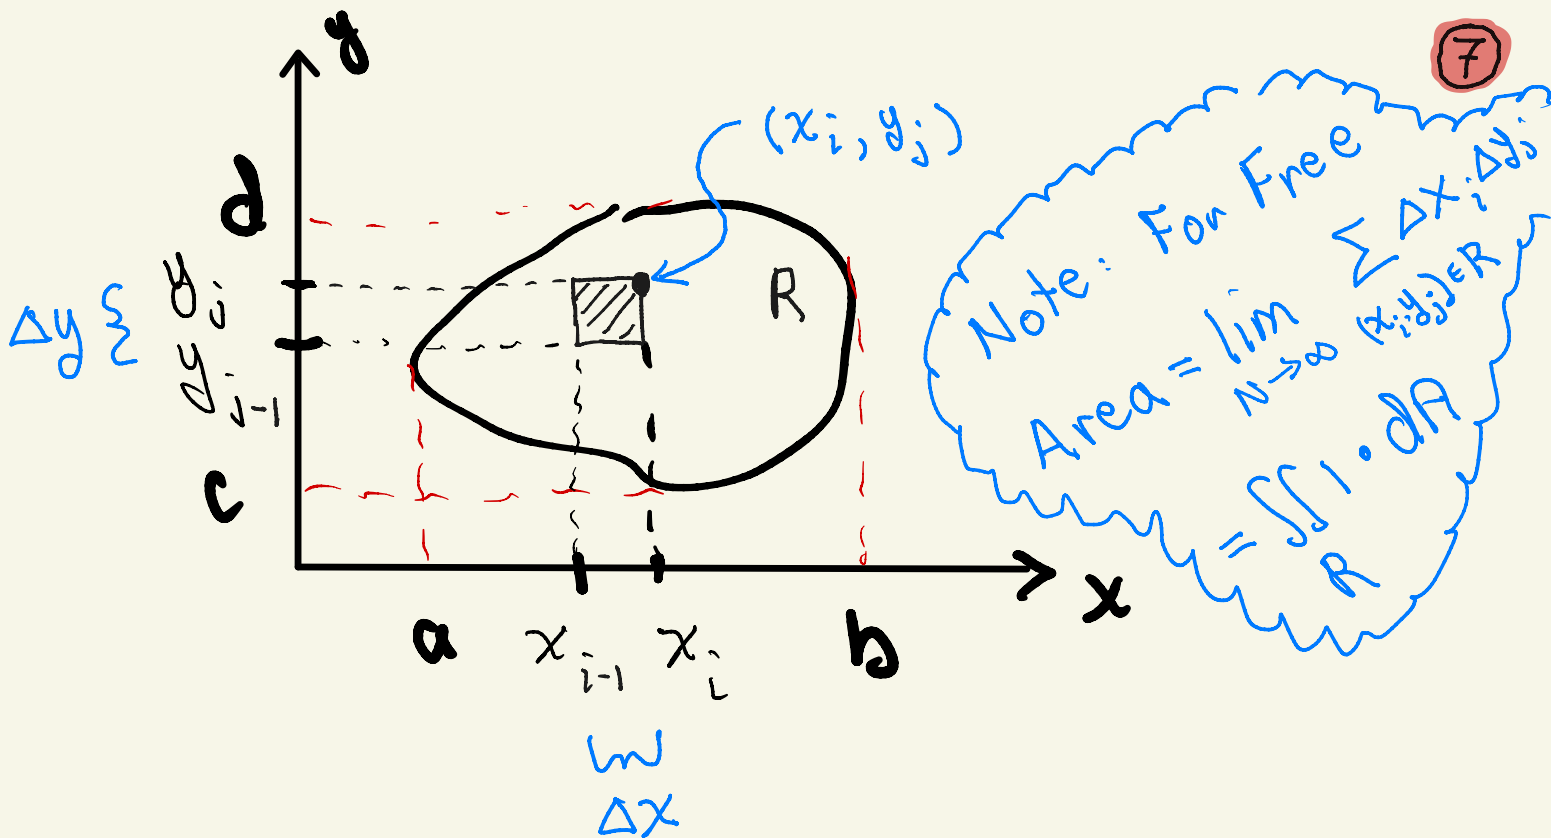 7
y
(xᵢ, yⱼ)
d
yⱼ
Δy {
yⱼ₋₁
c
R
a
xᵢ₋₁
xᵢ
b
x
Δx
Note: For Free
Area = lim N→∞ ∑ (xᵢ,yⱼ)∈R Δxᵢ Δyⱼ
= ∬ R 1 · dA